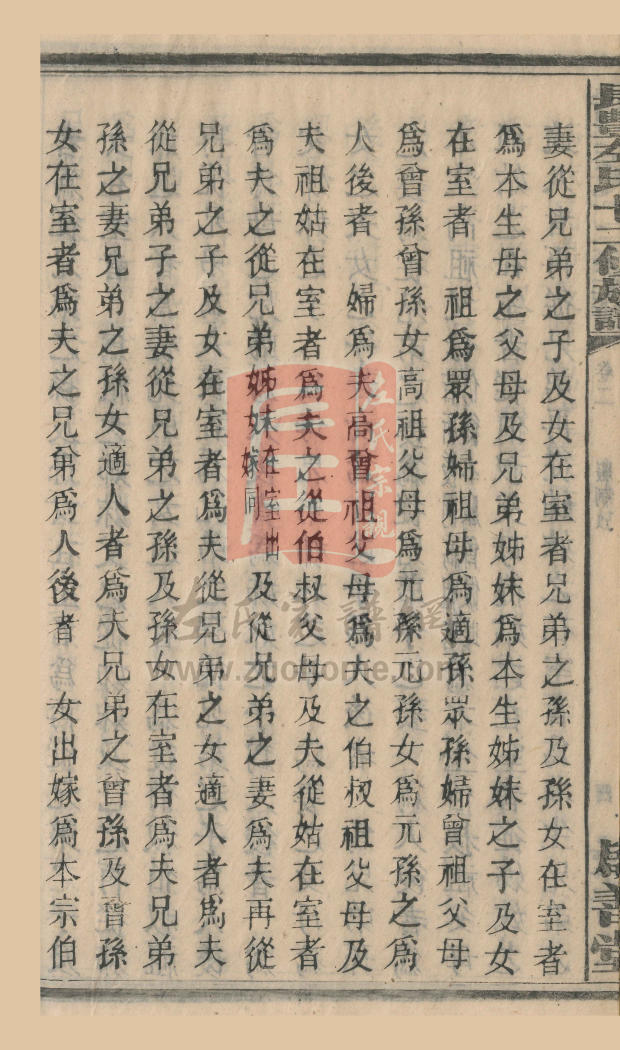 長豐左氏七修族譜
卷二
為善堂
妻從兄弟之子及女在室者兄弟之孫及孫女在室者
爲本生母之父母及兄弟姊妹爲本生姊妹之子及女
在室者　祖爲眾孫婦祖母爲適孫眾孫婦曾祖父母
爲曾孫曾孫女高祖父母爲元孫元孫女爲元孫之爲
人後者　婦爲夫高曾祖父母爲夫之伯叔祖父母及
夫祖姑在室者爲夫之從伯叔父母及夫從姑在室者
爲夫之從兄弟姊妹在室出嫁同及從兄弟之妻爲夫再從
兄弟之子及女在室者爲夫從兄弟之女適人者爲夫
從兄弟子之妻從兄弟之孫及孫女在室者爲夫兄弟
孫之妻兄弟之孫女適人者爲夫兄弟之曾孫及曾孫
女在室者爲夫之兄弟爲人後者　女出嫁爲本宗伯
左氏宗親
左氏家譜網
www.zuohome.com